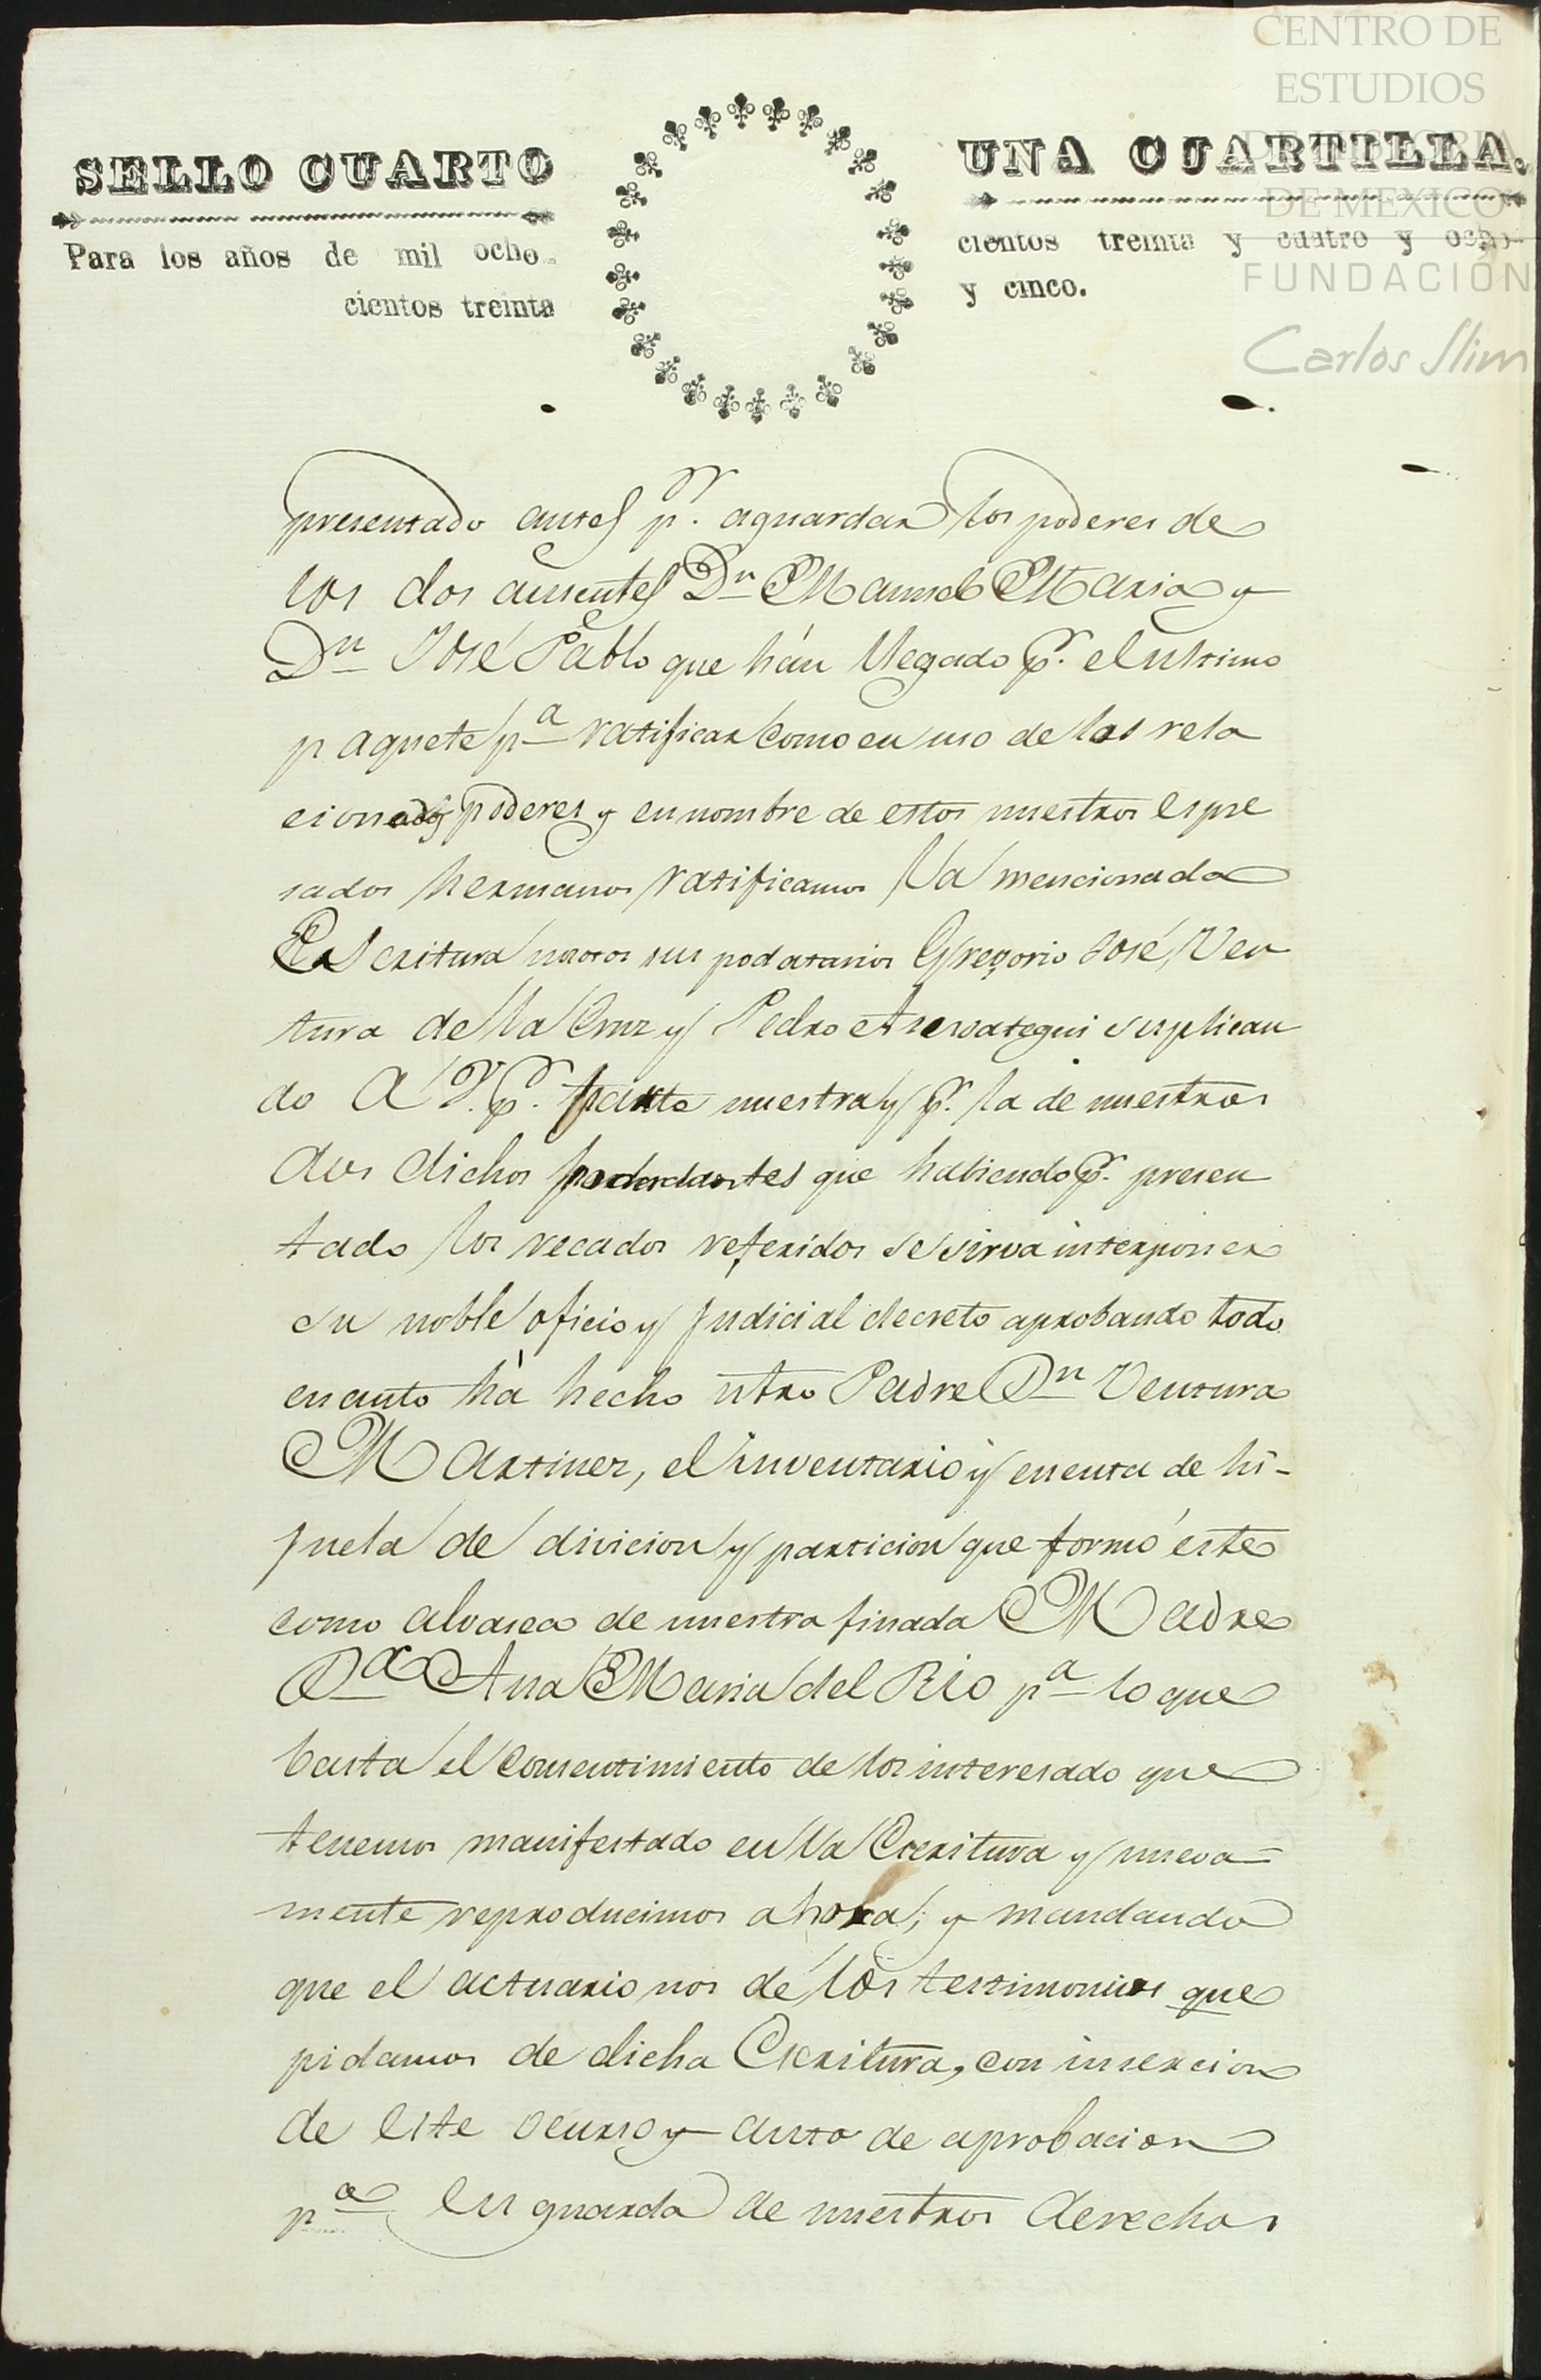 CENTRO DE
ESTUDIOS
DE MEXICO
FUNDACIÓN
Carlos Slim
SELLO CUARTO
UNA CUARTILLA.
Para los años de mil ocho-
cientos treinta
cientos treinta y cuatro y ocho-
y cinco.
presentado antes pr. aguardar los poderes de
los dos ausentes Dn Manuel Maria y
Dn José Pablo que hán llegado pr. el ultimo
paquete pa ratificar como en uso de los rela
cionados poderes y en nombre de estos nuestros espre
sados hermanos ratificamos la mencionada
Escritura nosotros sus podatarios Gregorio José, Ven
tura de la Cruz y Pedro suplican
do A V. pr. parte nuestra y pr. la de nuestros
dos dichos poderdantes que habiendo pr. presen
tado los recados referidos se sirva interponer
su noble oficio y judicial decreto aprobando todo
cuanto hà hecho ntro Padre Dn Ventura
Martinez, el inventario y cuenta de hi-
juela de division y particion que formó este
como alvasea de nuestra finada Madre
Da Ana Maria del Rio pa lo que
basta el consentimiento de los interesado que
tenemos manifestado en la Escritura y nueva=
mente reproducimos ahora; y mandando
que el actuario nos dé los testimonios que
pidamos de dicha Escritura, con insercion
de este ocurso y auto de aprobacion
pa en guarda de nuestros derechos